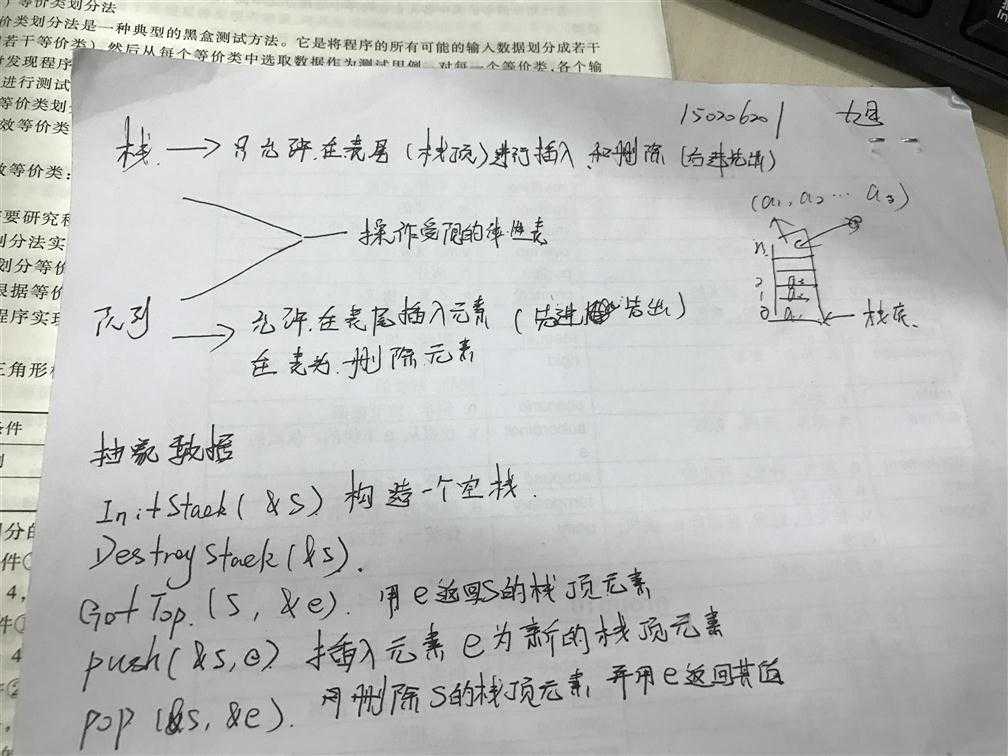 等价类划分法
价类划分法是一种典型的黑盒测试方法。它是将程序的所有可能的输入数据划分成若干
若干等价类），然后从每个等价类中选取数据作为测试用例，对每一个等价类，各个输
发现程序
进行测试
等价类划
效等价类
效等价类：
要研究和
划分法实
划分等价
根据等价
程序实现
三角形
条件
划分的
150206201
栈 → 只允许在表尾（栈顶）进行插入和删除（后进先出）
(a₁, a₂ … a₃)
操作受限的线性表
n
2 a₃
1 a₂
0 a₁ ← 栈底
队列 → 允许在表尾插入元素（先进先出）
在表头删除元素
抽象数据
InitStack(&S) 构造一个空栈.
DestroyStack(&S).
GetTop.(S, &e). 用e返回S的栈顶元素
push(&S,e) 插入元素e为新的栈顶元素
pop (&S, &e). 用删除S的栈顶元素,并用e返回其值